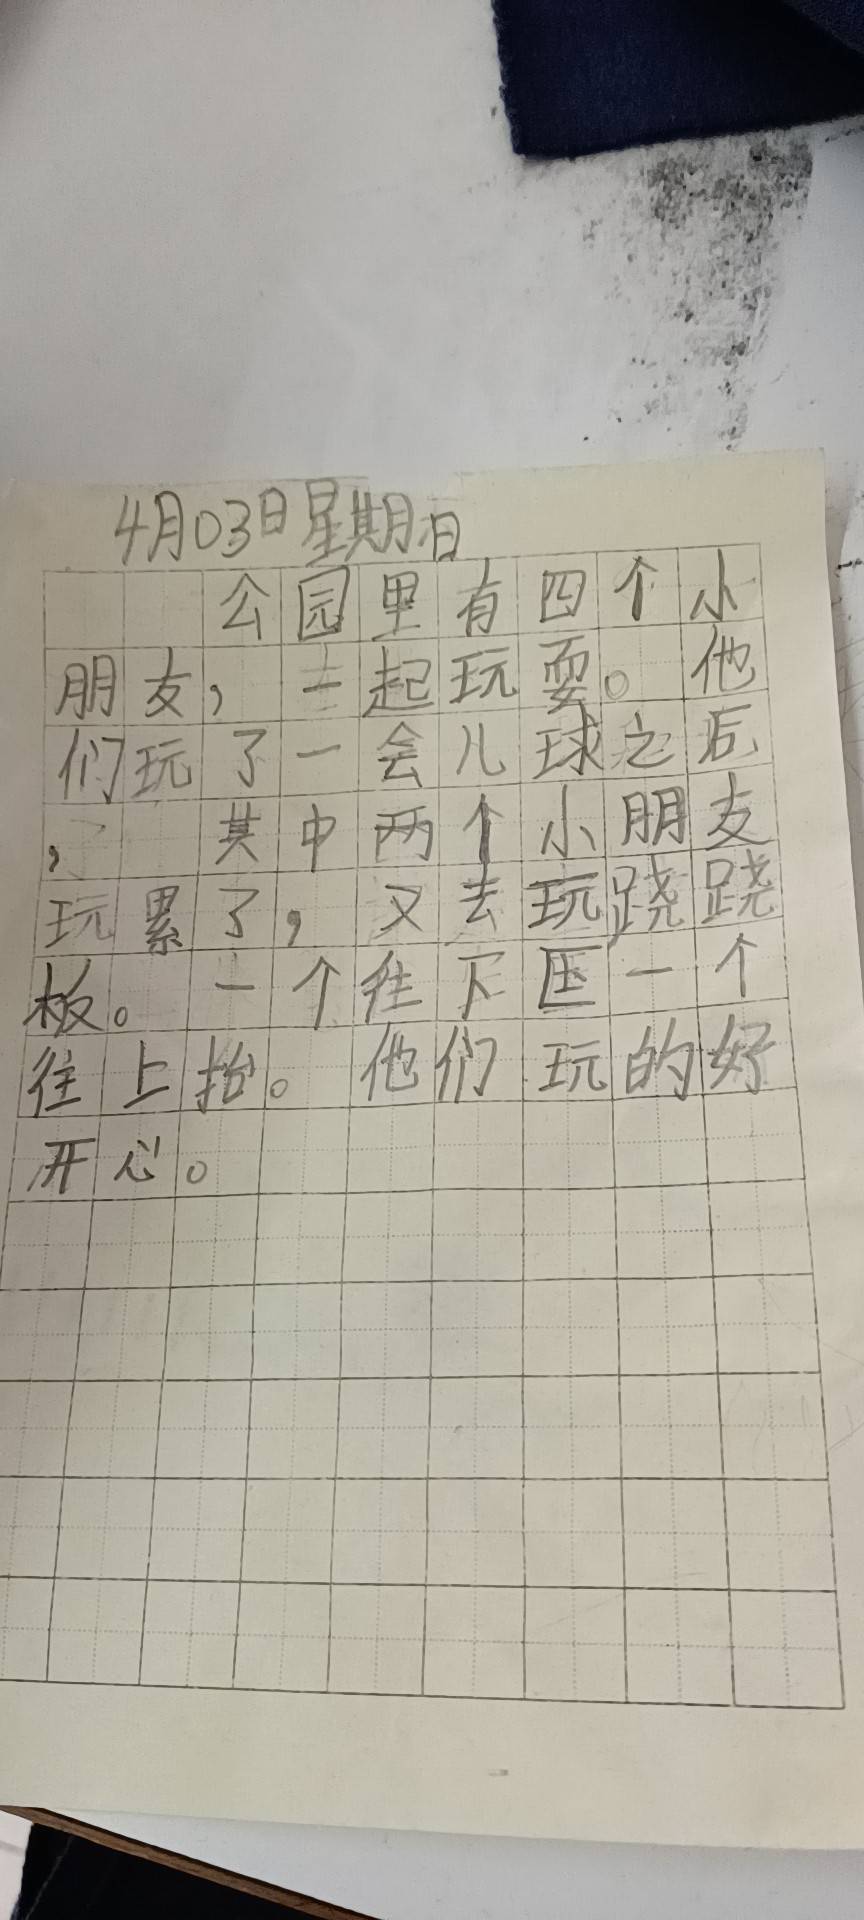 4月03日星期日
公园里有四个小
朋友，一起玩耍。他
们玩了一会儿球之后
，其中两个小朋友
玩累了，又去玩跷跷
板。一个往下压一个
往上抬。他们玩的好
开心。